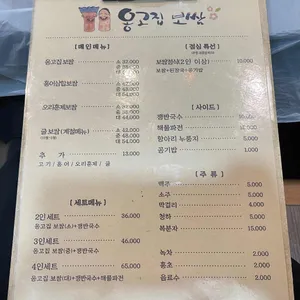 옹고집 보쌈
메인메뉴
옹고집보쌈
홍어삼합보쌈
오리훈제보쌈
굴보쌈(계절메뉴)
추가 13,000
고기/홍어/오리훈제/굴
세트메뉴
2인세트 36,000
옹고집 보쌈(소)+쟁반국수
3인세트 46,000
옹고집 보쌈(중)+쟁반국수
4인세트 65,000
옹고집 보쌈(대)+쟁반국수+해물파전
점심특선
보쌈정식(2인 이상) 10,000
보쌈+된장국+공기밥
사이드
쟁반국수
해물파전
항아리 누룽지
공기밥
주류
맥주 5,000
소주 5,000
막걸리
청하 5,000
복분자 15,000
녹차 2,000
홍초 2,000
음료수 2,000